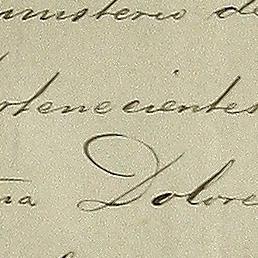 ministerio de
rtenecientes
ña Dolore